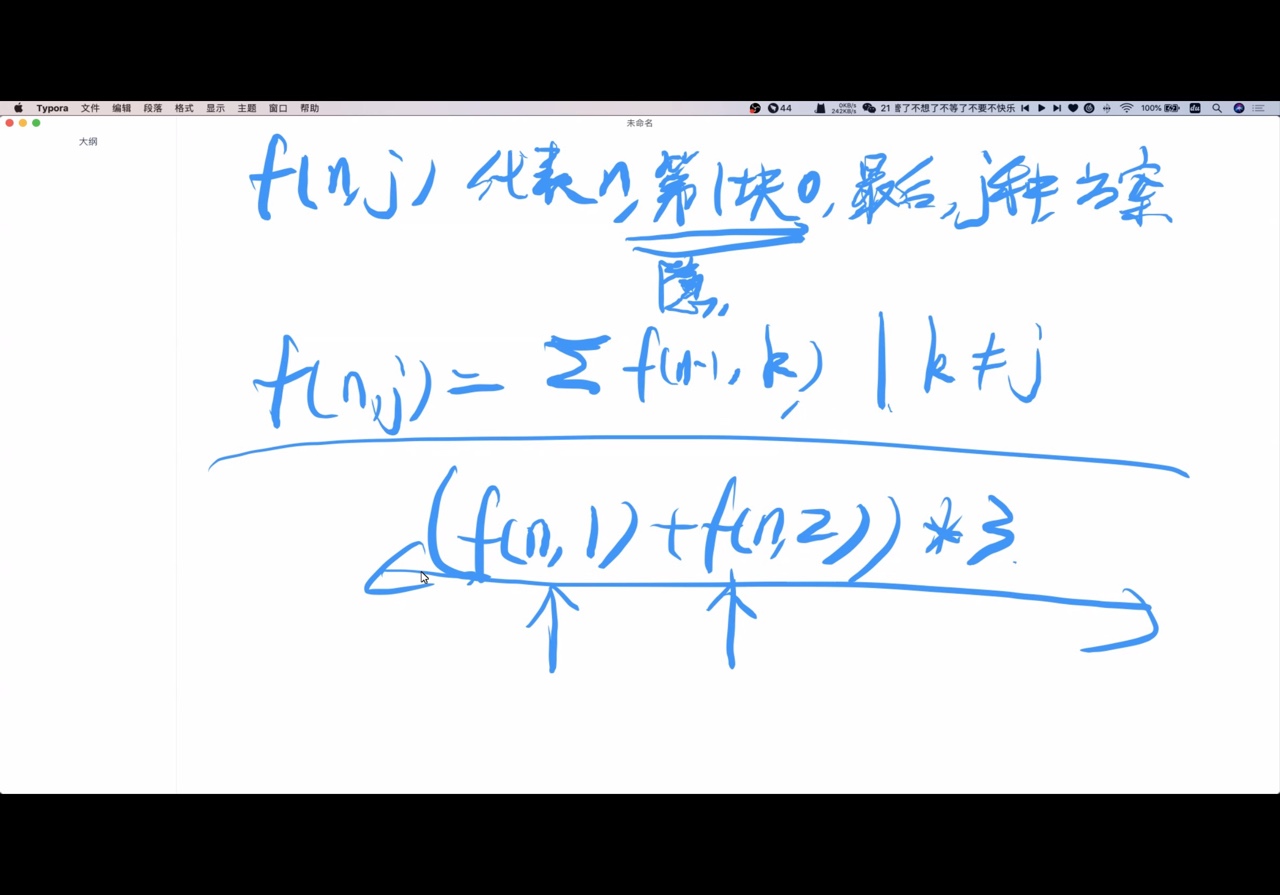 Typora 文件 编辑 段落 格式 显示 主题 窗口 帮助 44 0KB/s 242KB/s 21 了不想了不等了不要不快乐 100%
未命名
大纲
f(n,j) 代表n,第1块0,最后,j种方案
隐
f(n,j) = Σ f(n-1, k) | k≠j
(f(n,1)+f(n,2))*3